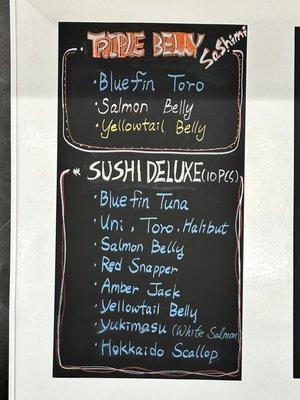 TRIPLE BELLY Sashimi
· Bluefin Toro
· Salmon Belly
· Yellowtail Belly
* SUSHI DELUXE (10 PCS)
· Bluefin Tuna
· Uni , Toro . Halibut
· Salmon Belly
· Red Snapper
· Amber Jack
· Yellowtail Belly
· Yukimasu (White Salmon)
· Hokkaido Scallop